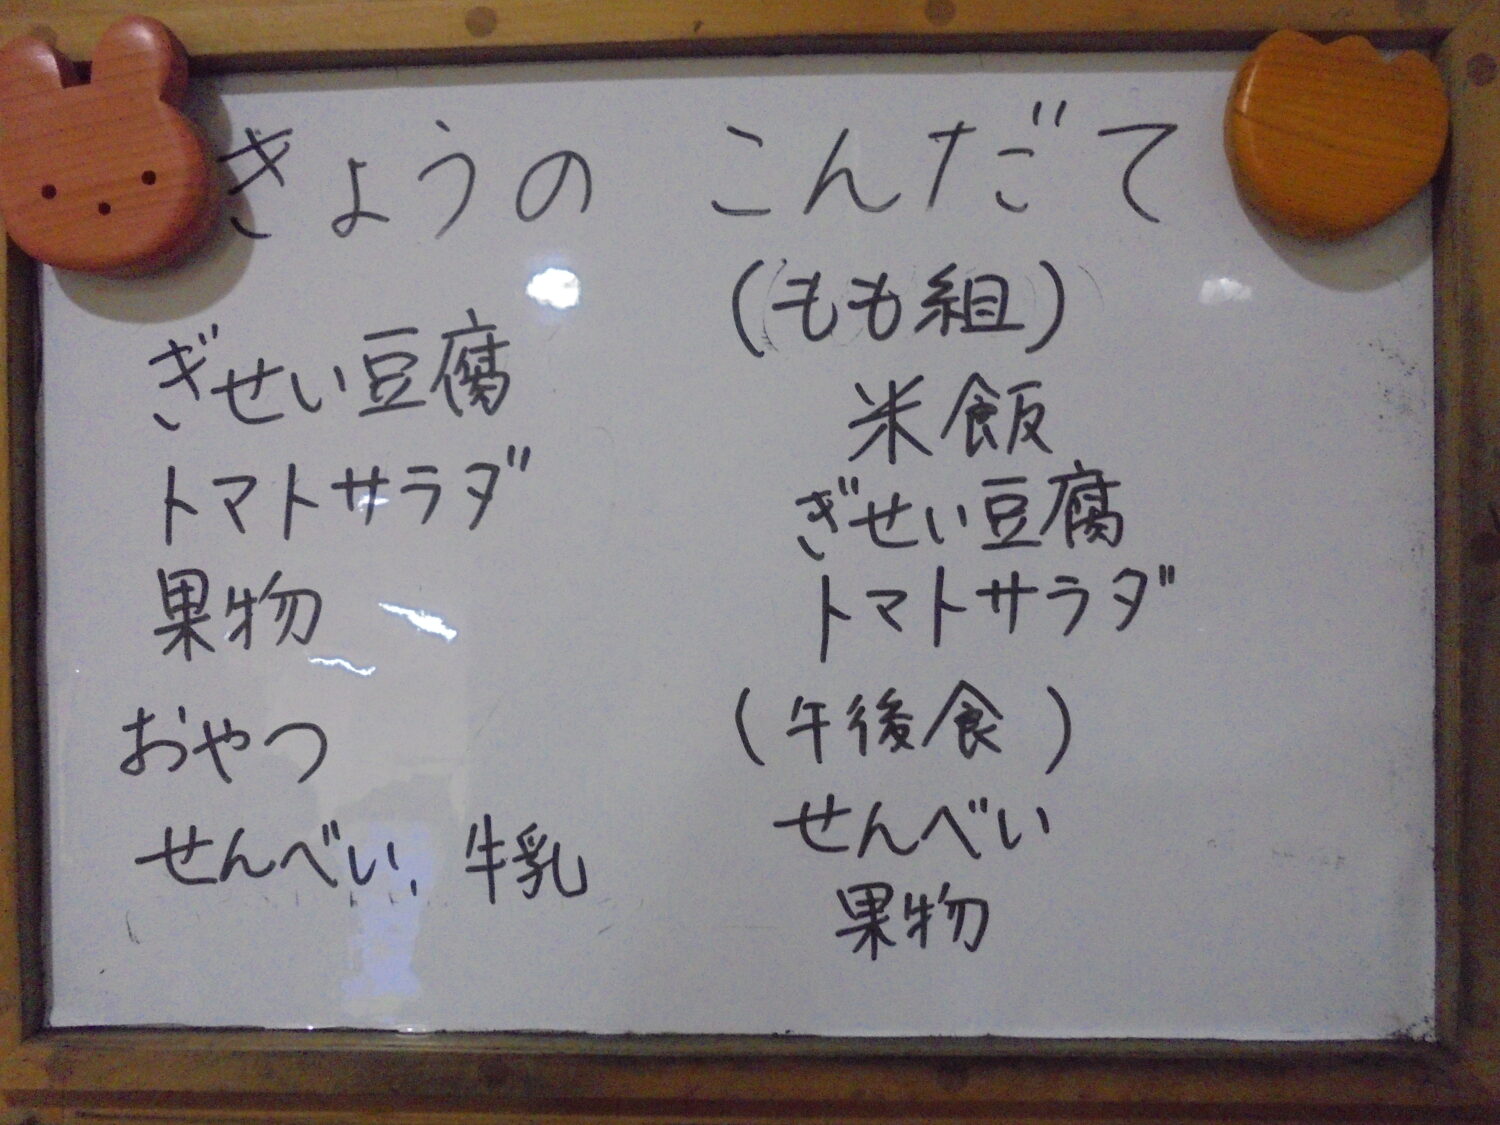 きょうの こんだて
ぎせい豆腐
トマトサラダ
果物
おやつ
せんべい、牛乳
(もも組)
米飯
ぎせい豆腐
トマトサラダ
(午後食)
せんべい
果物